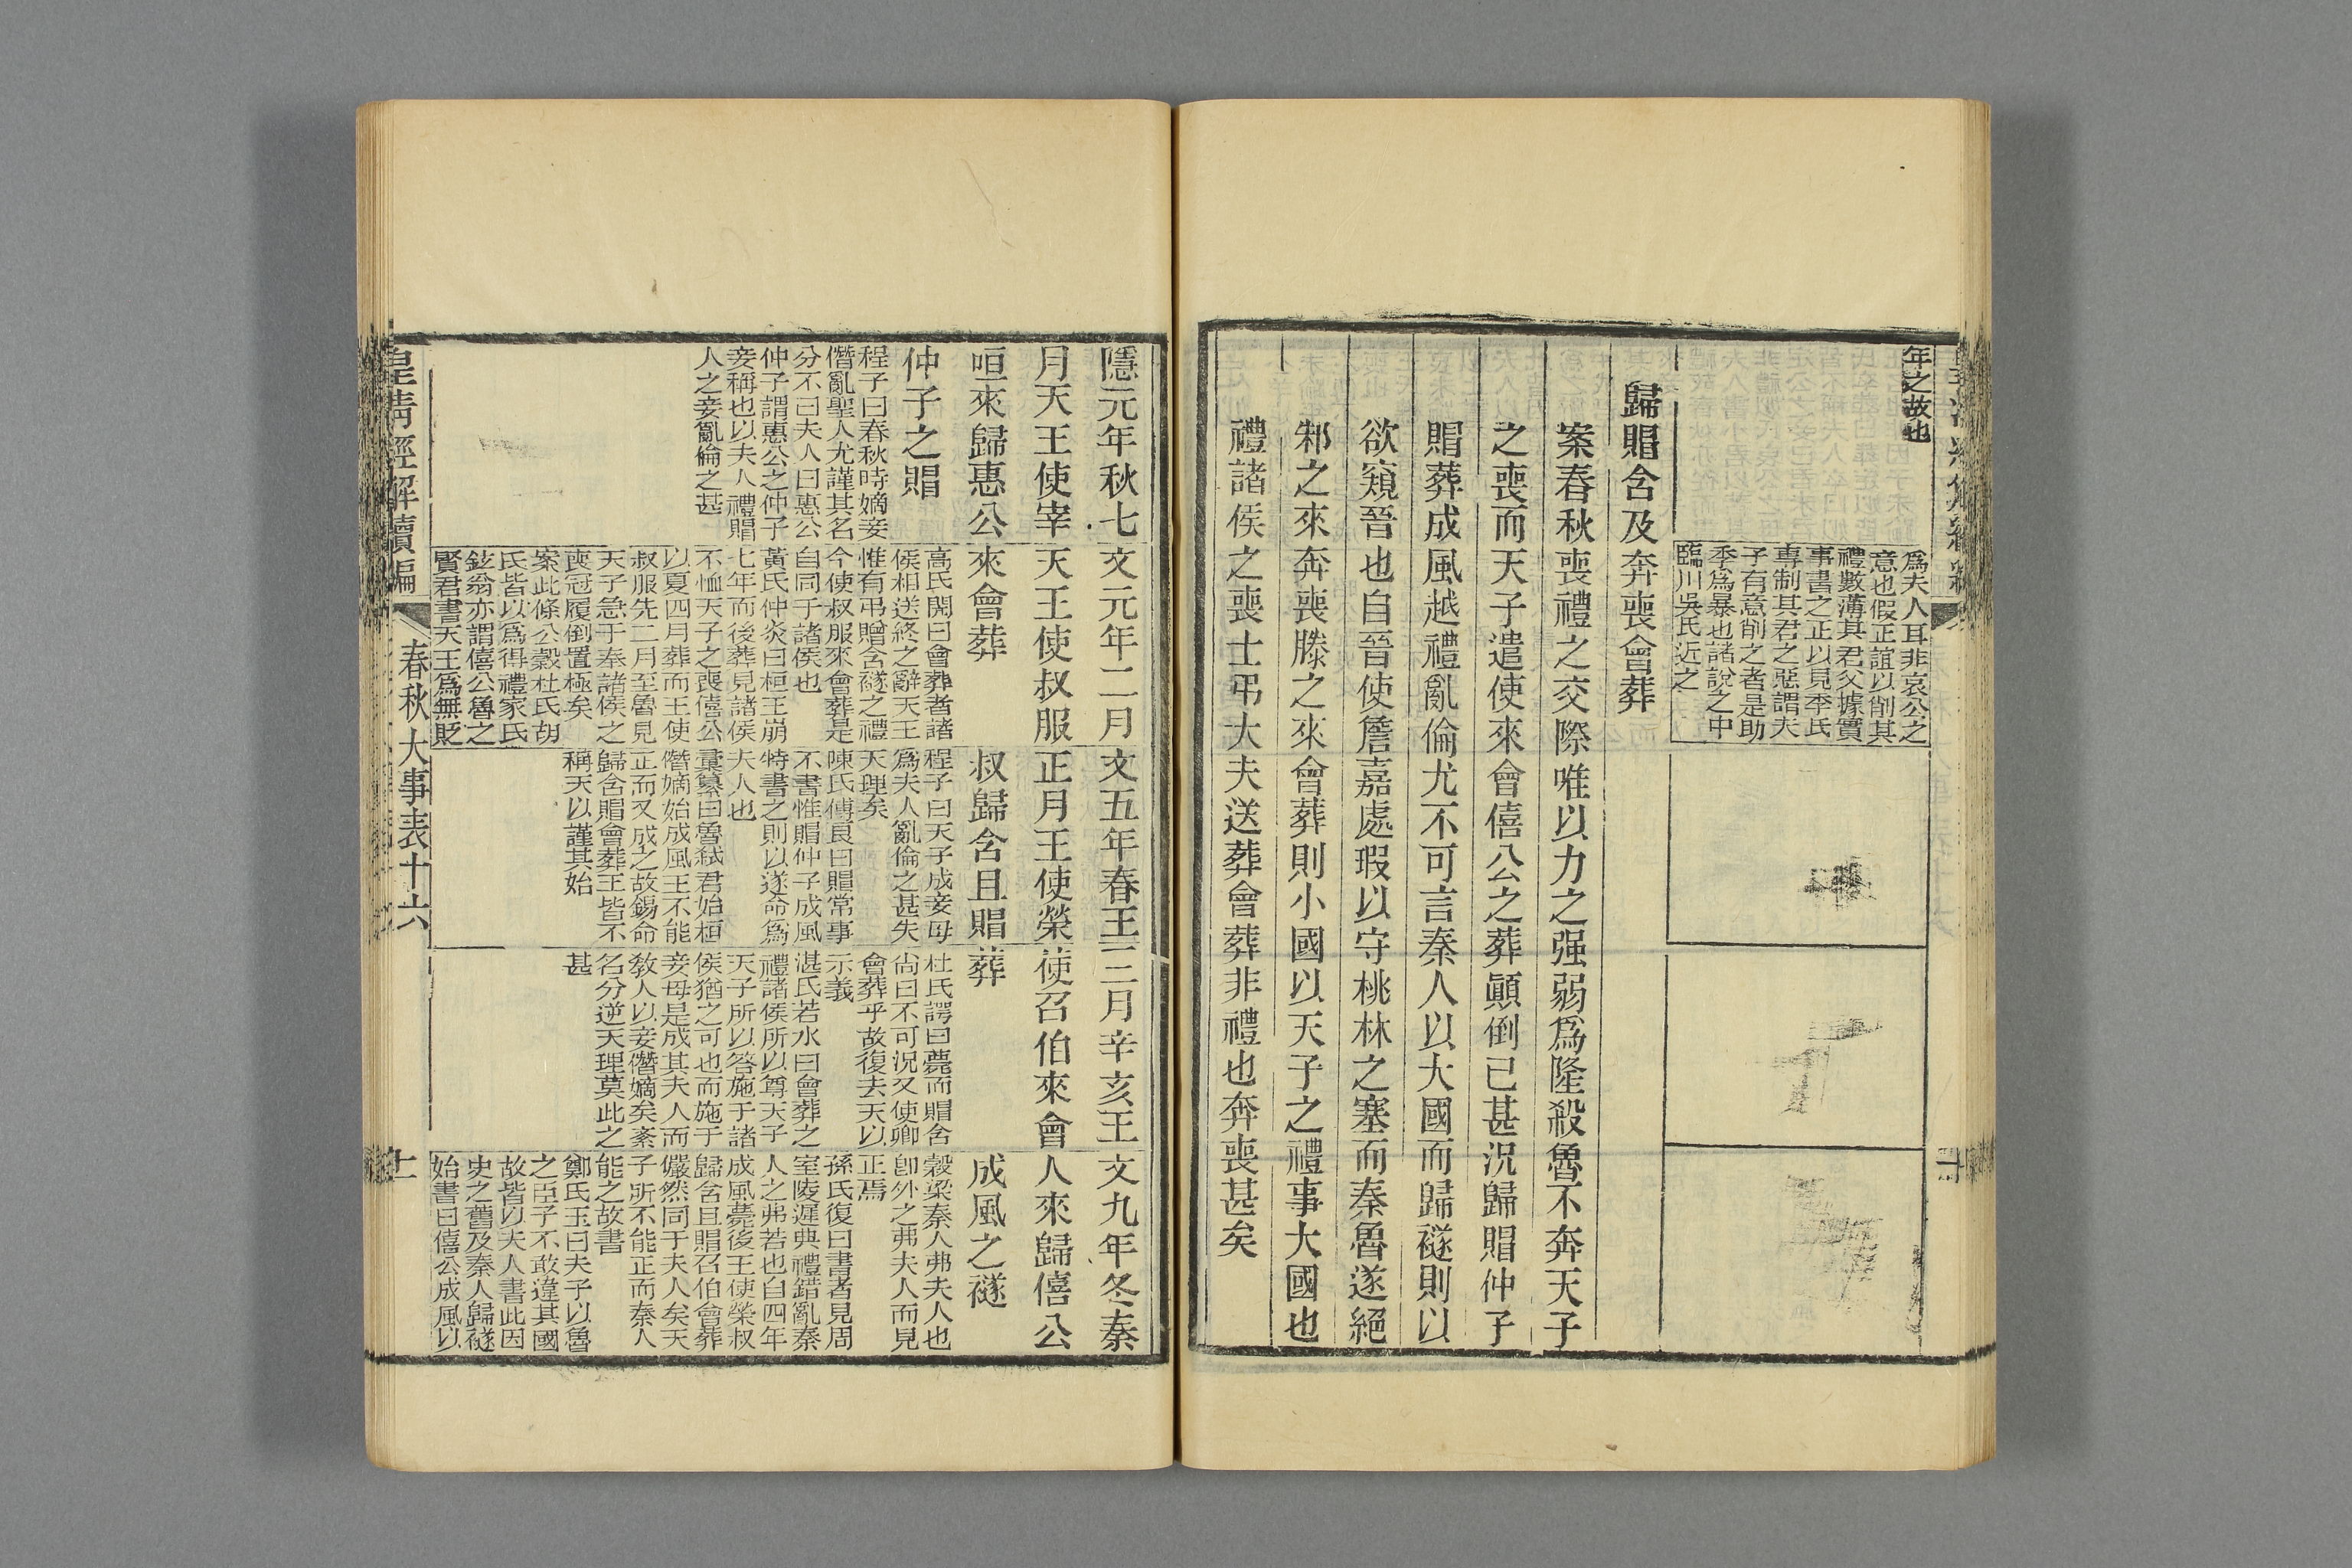 年之故也
爲夫人耳非哀公之
意也假正誼以削其
禮數薄其君父據實
事書之正以見季氏
專制其君之惡謂夫
子有意削之者是助
季爲暴也諸說之中
臨川吳氏近之
歸賵含及奔喪會葬
案春秋喪禮之交際唯以力之强弱爲隆殺魯不奔天子
之喪而天子遣使來會僖公之葬顚倒已甚況歸賵仲子
賵葬成風越禮亂倫尤不可言秦人以大國而歸襚則以
欲窺晉也自晉使詹嘉處瑕以守桃林之塞而秦魯遂絕
邾之來奔喪滕之來會葬則小國以天子之禮事大國也
禮諸侯之喪士弔大夫送葬會葬非禮也奔喪甚矣
隱元年秋七
月天王使宰
咺來歸惠公
仲子之賵
程子曰春秋時嫡妾
僭亂聖人尤謹其名
分不曰夫人曰惠公
仲子謂惠公之仲子
妾稱也以夫人禮賵
人之妾亂倫之甚
文元年二月
天王使叔服
來會葬
高氏閌曰會葬者諸
侯相送終之辭天王
惟有弔贈含襚之禮
今使叔服來會葬是
自同于諸侯也
黃氏仲炎曰桓王崩
七年而後葬見諸侯
不恤天子之喪僖公
以夏四月葬而王使
叔服先二月至魯見
天子急于奉諸侯之
喪冠履倒置極矣
案此條公穀杜氏胡
氏皆以爲得禮家氏
鉉翁亦謂僖公魯之
賢君書天王爲無貶
文五年春王
正月王使榮
叔歸含且賵
程子曰天子成妾母
爲夫人亂倫之甚失
天理矣
陳氏傅良曰賵常事
不書惟賵仲子成風
特書之則以遂命爲
夫人也
彙纂曰魯弒君始桓
僭嫡始成風王不能
正而又成之故錫命
歸含賵會葬王皆不
稱天以謹其始
三月辛亥王
使召伯來會
葬
杜氏諤曰薨而賵含
尚曰不可況又使卿
會葬乎故復去天以
示義
湛氏若水曰會葬之
禮諸侯所以尊天子
天子所以答施于諸
侯猶之可也而施于
妾母是成其夫人而
敎人以妾僭嫡矣紊
名分逆天理莫此之
甚
文九年冬秦
人來歸僖公
成風之襚
穀梁秦人弗夫人也
卽外之弗夫人而見
正焉
孫氏復曰書者見周
室陵遲典禮錯亂秦
人之弗若也自四年
成風薨後王使榮叔
歸含且賵召伯會葬
儼然同于夫人矣天
子所不能正而秦人
能之故書
鄭氏玉曰夫子以魯
之臣子不敢違其國
故皆以夫人書此因
史之舊及秦人歸襚
始書曰僖公成風以
皇淸經解續編
春秋大事表十六
十一